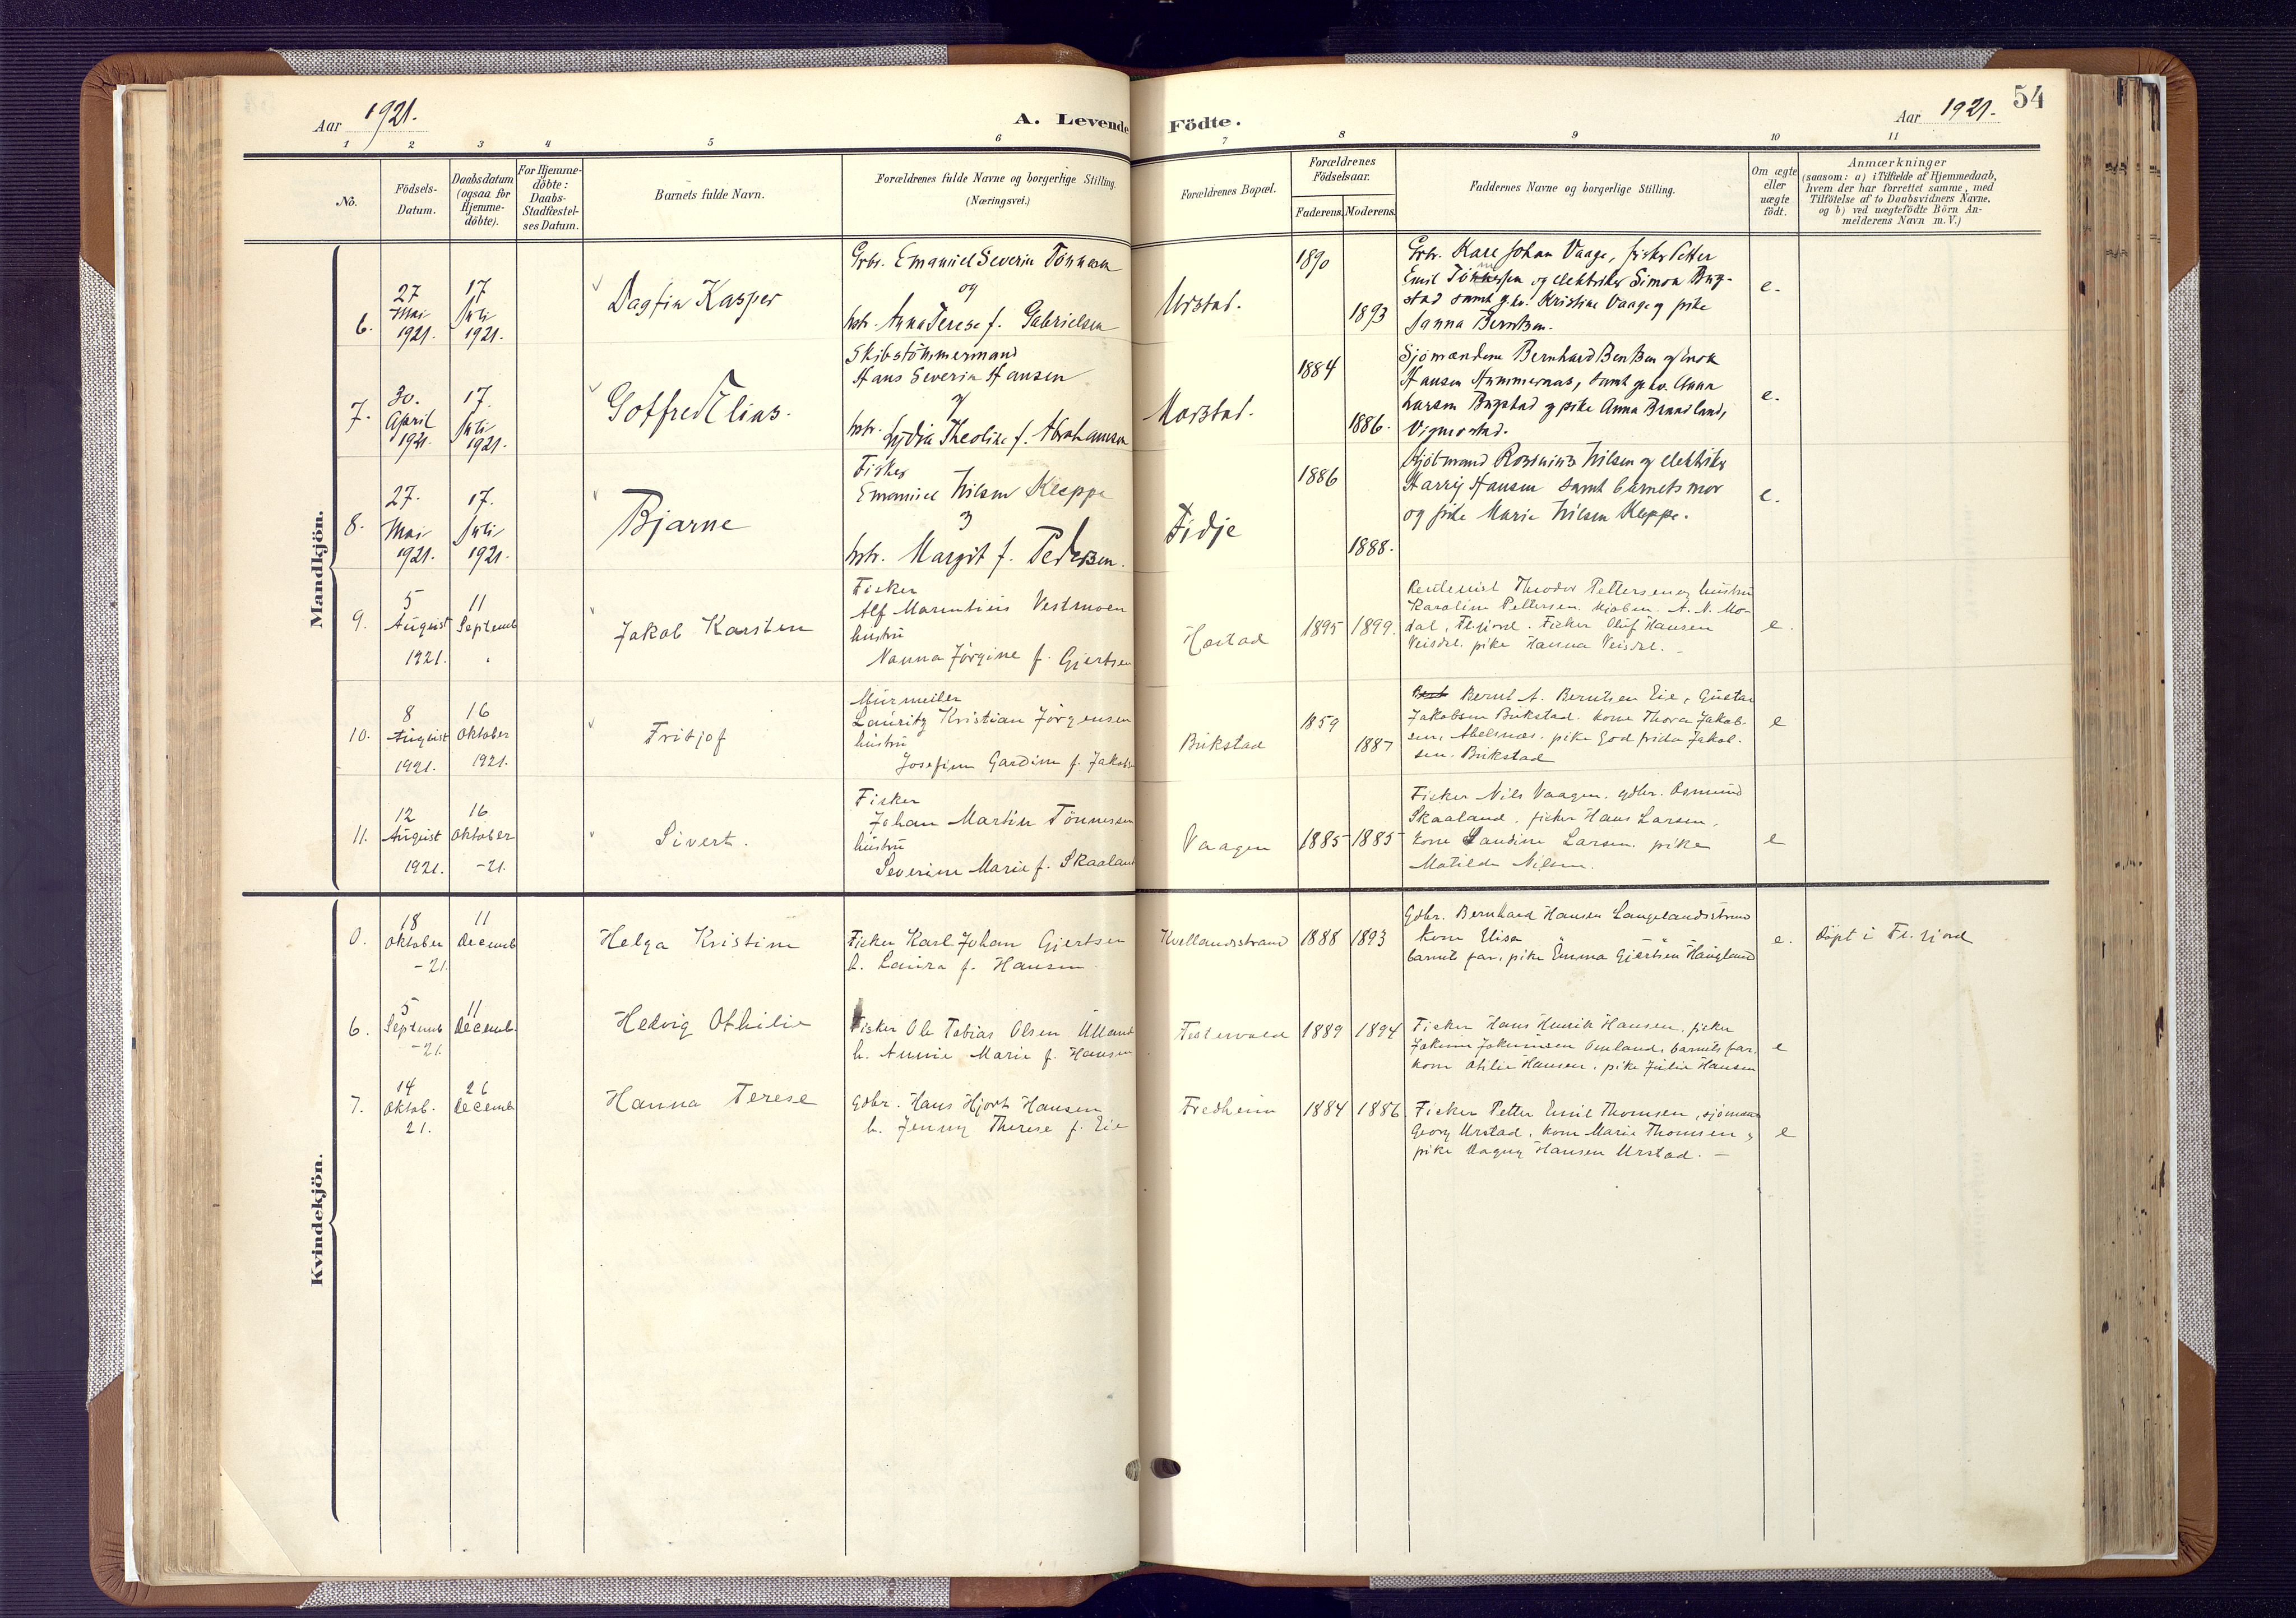 Aar 1921.
A. Levende Födte.
Aar 1921.
54
1 2 3 4 5 6 7 8 9 10 11
No.
Födsels-
Datum.
Daabsdatum
(ogsaa for
Hjemme-
döbte).
For Hjemme-
döbte:
Daabs-
Stadfæstel-
ses Datum.
Barnets fulde Navn.
Forældrenes fulde Navne og borgerlige Stilling.
(Næringsvei.)
Forældrenes Bopæl.
Forældrenes
Födselsaar.
Faderens. Moderens.
Faddernes Navne og borgerlige Stilling.
Om ægte
eller
uægte
födt.
Anmærkninger
(saasom: a) i Tilfælde af Hjemmedaab,
hvem der har forrettet samme, med
Tilföielse af to Daabsvidners Navne,
og b) ved uægtefödte Börn An-
melderens Navn m.V.)
Mandkjön.
6.
27
Mai
1921.
17
Juli
1921.
Dagfin Kasper
Grbr. Emanuel Severin Tönnesen
og
hstr. Anna Terese f. Gabrielsen
Urstad.
1890
1893
Grbr. Karl Johan Vaage, fisker Petter
Emil Tönnessen og elektriker Simon Byg-
stad samt gko. Kristine Vaage og pike
Janna Berntsen.
e.
7.
30.
April
1921.
17.
Juli
1921.
Gotfred Elias.
Skibstömmermand
Hans Severin Hansen
og
hstr. Lydia Theoline f. Abrahamsen
1884
1886.
Sjömændene Bernhard Bentsen og Enok
Hansen Hummernes, samt gko. Anna
Larsen Bugstad og pike Anna Braadland,
Vigmostad.
e.
8.
27.
Mai
1921.
17.
Juli
1921.
Bjarne
Fisker
Emanuel Nilsen Kleppe
og
hstr. Margit f. Pedersen.
Fidje
1886
1888.
Sjömand Rasmus Nilsen og elektriker
Harry Hansen samt barnets mor
og pike Marie Nilsen Kleppe.
e.
9.
5
August
1921.
11
Septemb
Jakob Karsten
Fisker
Alf Marentius Vestmoen
hustru
Nanna Jörgine f. Gjertsen
1895 1899.
Theodor Pettersen og hustru
Karoline Pettersen. Kjöbm. A. N. Mo-
dal, Fl.fjord. Fisker Oluf Hansen
Veisdal. pike Hanna Veisdal.
e.
10.
8
August
1921.
16
Oktober
1921.
Fritjof
Murmester
Lauritz Kristian Jörgensen
hustru
Josefine Gardine f. Jakobs
Bukstad
1859
1887
Bernt A. Berntsen Eie, Gustav
Jakobsen Bukstad. kone Thora Jakob-
sen, Abelsnes. pike Godfrida Jakob-
sen. Bukstad
e
11.
12
August
1921.
16
Oktober
-21.
Sivert.
Fisker
Johan Martin Tönnessen
hustru
Severine Marie f. Skaaland
Vaagen
1885 1885
Fisker Nils Vaagen, gdbr. Osmund
Skaaland, fisker Hans Larsen,
kone Laudine Larsen. pike
Matilde Nilsen.
e
Kvindekjön.
18
Oktober
-21.
11
Decemb
Helga Kristine
Fisker Karl Johan Gjertsen
h. Laura f. Hansen
Kvellandsstrand
1888 1893
Gdbr. Bernhard Hansen Langelandsstrand
kone Elisa
barnets far, pike Emma Gjertsen Haugland
e.
Döpt i Fl.fjord
6.
5
Septemb
-21.
11
Decemb.
Hedvig Othilie
Fisker Ole Tobias Olsen Ulland
h. Annie Marie f. Hansen
1889 1894
Fisker Hans Henrik Hansen, fisker
Jakum Jokumsen Omland, barnets far,
kone Otilie Hansen, pike Julie Hansen
e
7.
14
Oktob.
21.
26
Decemb
Hanna Terese
Gdbr. Hans Hjorth Hansen
h. Jenny Therese f. Eie
Fredheim
1884 1886
Fisker Petter Emil Thomsen, sjömand
Georg Urstad, kone Marie Thomsen,
pike Dagny Hansen Urstad. –
e